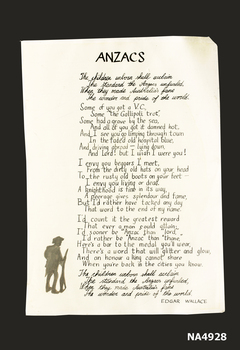 ANZACS
The children unborn shall acclaim
The standard the Anzacs unfurled,
When they made Australia's fame
The wonder and pride of the world.
Some of you got a V.C.,
Some "the Gallipoli trot",
Some had a grave by the sea,
And all of you got it damned hot,
And I see you go limping through town
In the faded old hospital blue,
And driving abroad – lying down,
And Lord! but I wish I were you!
I envy you beggars I meet,
From the dirty old hats on your head
To the rusty old boots on your feet –
I envy you living or dead.
A knighthood is fine in its way,
A peerage gives splendour and fame,
But I'd rather have tacked any day
That word to the end of my name.
I'd count it the greatest reward
That ever a man could attain;
I'd sooner be "Anzac" than "lord",
I'd rather be "Anzac" than "thane".
Here's a bar to the medal you'll wear,
There's a word that will glitter and glow,
And an honour a king cannot share
When you're back in the cities you know.
The children unborn shall acclaim
The standard the Anzacs unfurled,
When they made Australia's fame
The wonder and pride of the world.
EDGAR WALLACE
NA4928